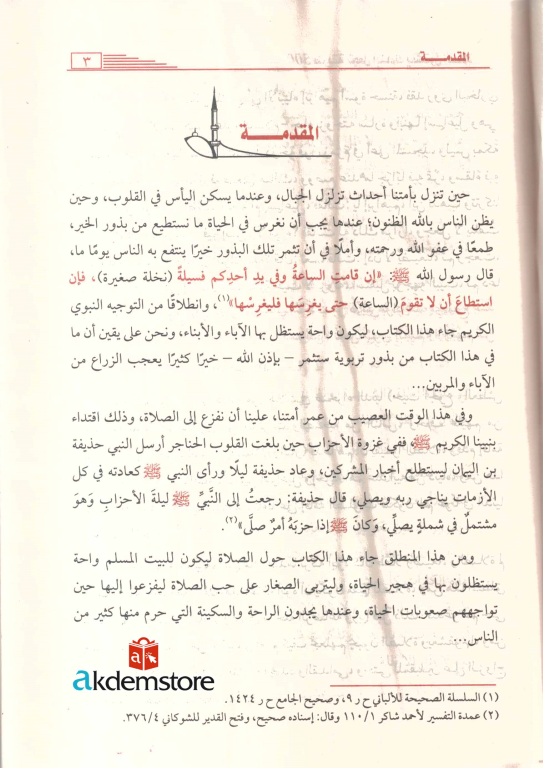 المقدمـــة
٣
المقدمـــة
حين تنزل بأمتنا أحداث تزلزل الجبال، وعندما يسكن اليأس في القلوب، وحين
يظن الناس بالله الظنون؛ عندها يجب أن نغرس في الحياة ما نستطيع من بذور الخير،
طمعًا في عفو الله ورحمته، وأملًا في أن تثمر تلك البذور خيرًا ينتفع به الناس يومًا ما،
قال رسول الله ﷺ: «إن قامتِ الساعةُ وفي يدِ أحدِكم فسيلةً (نخلة صغيرة)، فإن
استطاعَ أن لا تقومَ (الساعة) حتى يغرِسَها فليغرِسْها»(١)، وانطلاقًا من التوجيه النبوي
الكريم جاء هذا الكتاب، ليكون واحة يستظل بها الآباء والأبناء، ونحن على يقين أن ما
في هذا الكتاب من بذور تربوية ستثمر – بإذن الله – خيرًا كثيرًا يعجب الزراع من
الآباء والمربين...
وفي هذا الوقت العصيب من عمر أمتنا، علينا أن نفزع إلى الصلاة، وذلك اقتداء
بنبينا الكريم ﷺ، ففي غزوة الأحزاب حين بلغت القلوب الحناجر أرسل النبي حذيفة
بن اليمان ليستطلع أخبار المشركين، وعاد حذيفة ليلًا ورأى النبي ﷺ كعادته في كل
الأزمات يناجي ربه ويصلي، قال حذيفة: رجعتُ إلى النَّبيِّ ﷺ ليلةَ الأحزابِ وَهوَ
مشتملٌ في شملةٍ يصلِّي، وَكانَ ﷺ إذا حزبَهُ أمرٌ صلَّى»(٢).
ومن هذا المنطلق جاء هذا الكتاب حول الصلاة ليكون للبيت المسلم واحة
يستظلون بها في هجير الحياة، وليتربى الصغار على حب الصلاة ليفزعوا إليها حين
تواجههم صعوبات الحياة، وعندها يجدون الراحة والسكينة التي حرم منها كثير من
الناس...
a
akdemstore
(١) السلسلة الصحيحة للألباني ح ر ٩، وصحيح الجامع ح ر ١٤٢٤.
(٢) عمدة التفسير لأحمد شاكر ١/ ١١٠ وقال: إسناده صحيح، وفتح القدير للشوكاني ٤/ ٣٧٦.